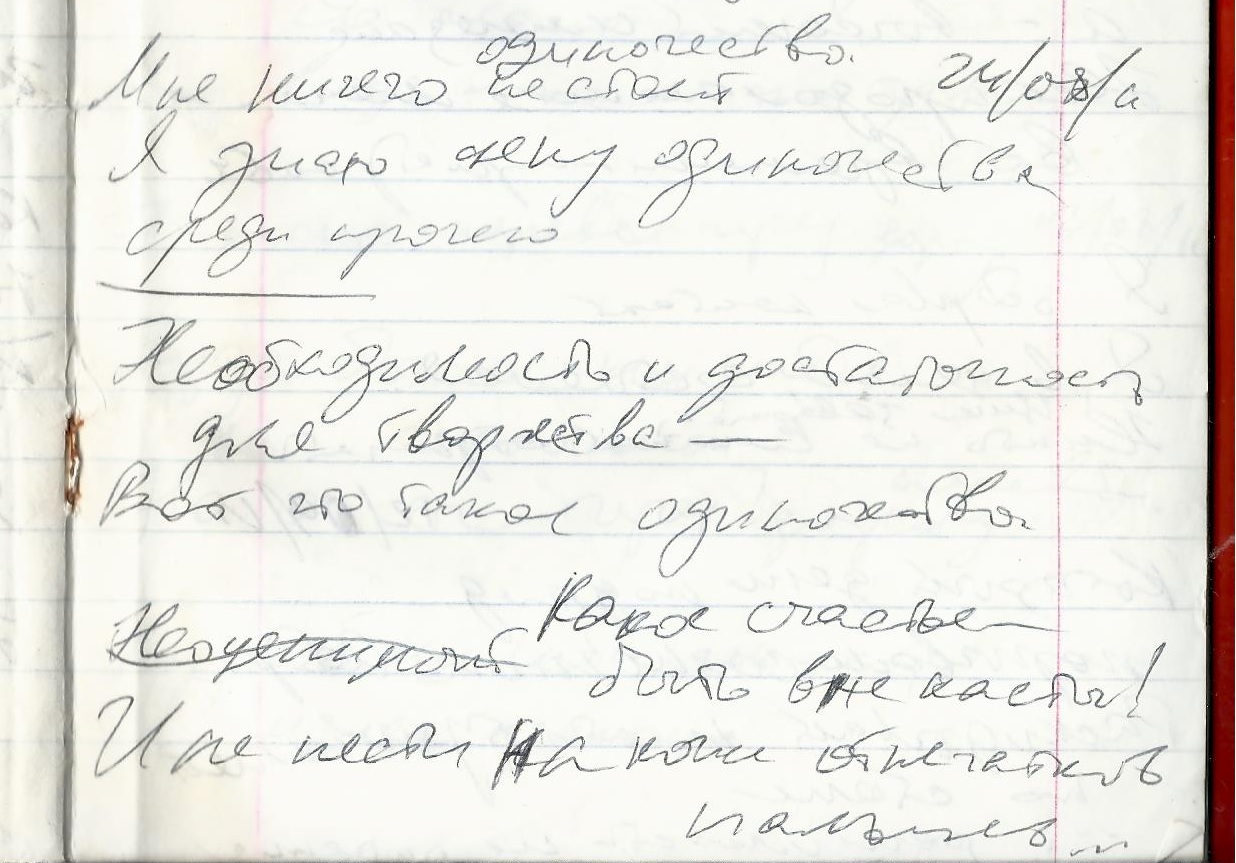 одиночество.
Мне ничего не стоит 24/08/11
Я знаю цену одиночества
среди прочего
Необходимость и достаточность
для творчества —
Вот что такое одиночество.
Какое счастье —
Неоценимость быть вне касты!
И не нести на коже отпечатков
пальцев...